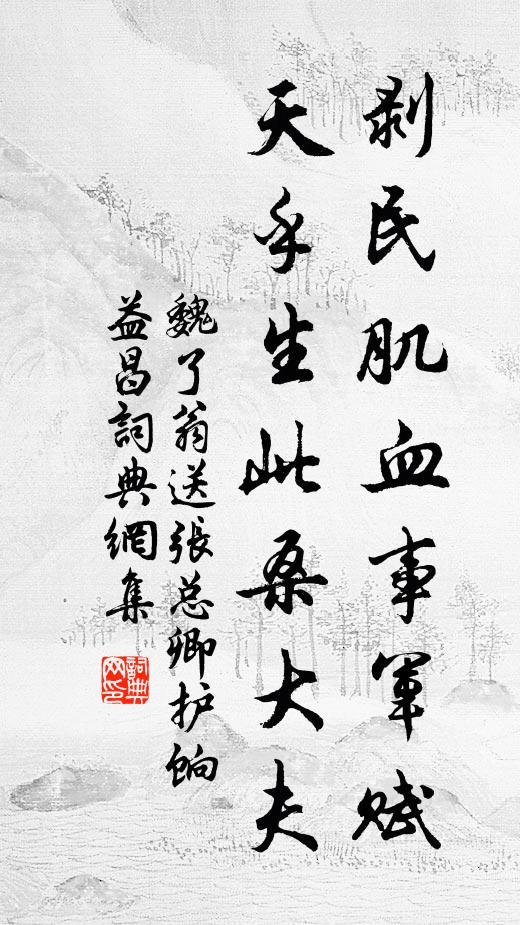 剥民肌血事軍赋
天乎生此桑大夫
魏了翁送張总卿护饷
益昌詞典網集
詞典网印